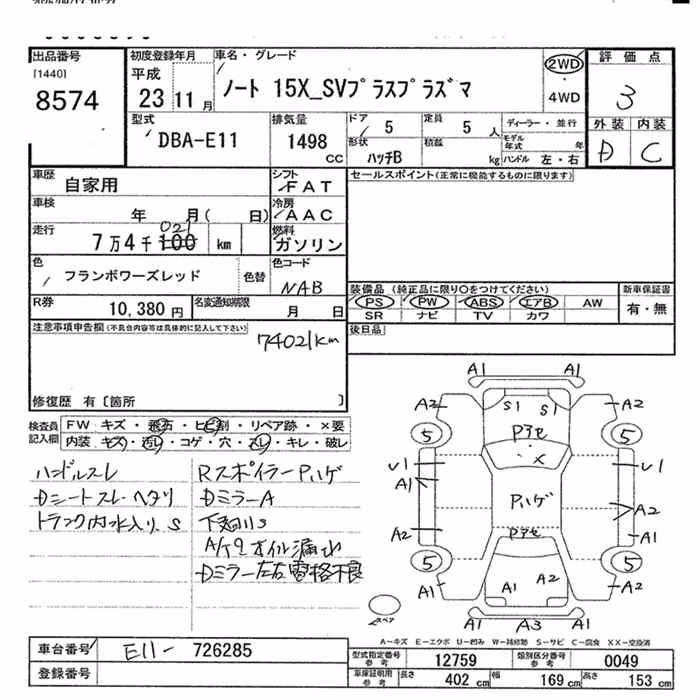 出品番号
[1440]
8574
初度登録年月
平成
23 11 月
車名・グレード
ノート 15X_SVプラスプラズマ
2WD
・
4WD
評価点
3
外装 内装
D C
型式
DBA-E11
排気量
1498
CC
ドア
5
定員
5 人
ディーラー・並行
形状
ハッチB
積載
kg
モデル年式 年
ハンドル 左・右
車歴
自家用
シフト
FAT
セールスポイント(正常に機能するものに限ります)
車検
年 月( 日)
冷房
AAC
走行
021
7万4千100 km
燃料
ガソリン
色
フランボワーズレッド
色替
色コード
NAB
装備品 (純正品に限り○をつけてください)
新車保証書
PS PW ABS エアB AW
SR ナビ TV カワ
有・無
R券
10,380 円
名変通知期限
月 日
後日品
注意事項申告欄(不具合内容等は具体的に記入して下さい)
74021km
修復歴 有〔箇所 〕
検査員
記入欄
FW キズ・飛石・ヒビ割・リペア跡・×要
内装 キズ・汚レ・コゲ・穴・スレ・キレ・破レ
ハンドルスレ
Dシートスレ・ヘタリ
トランク内水入り S
Rスポイラー Pハゲ
DミラーA
下廻りS
オイル漏れ
Dミラー左右 格不良
A1 A1
A2 S1 S1 A2
5 Pアセ 5
U1 X U1
A1
Pハゲ
A2
A2 Pアセ A1
5 5
A1 A1 A2 A2
A1 A3 A1
スペア
A－キズ E－エクボ U－凹み W－補修跡 S－サビ C－腐食 XX－交換済
車台番号
E11- 726285
登録番号
型式指定番号
参考
12759
類別区分番号
参考
0049
車庫証明用
参考
長さ 402 cm 幅 169 cm 高さ 153 cm